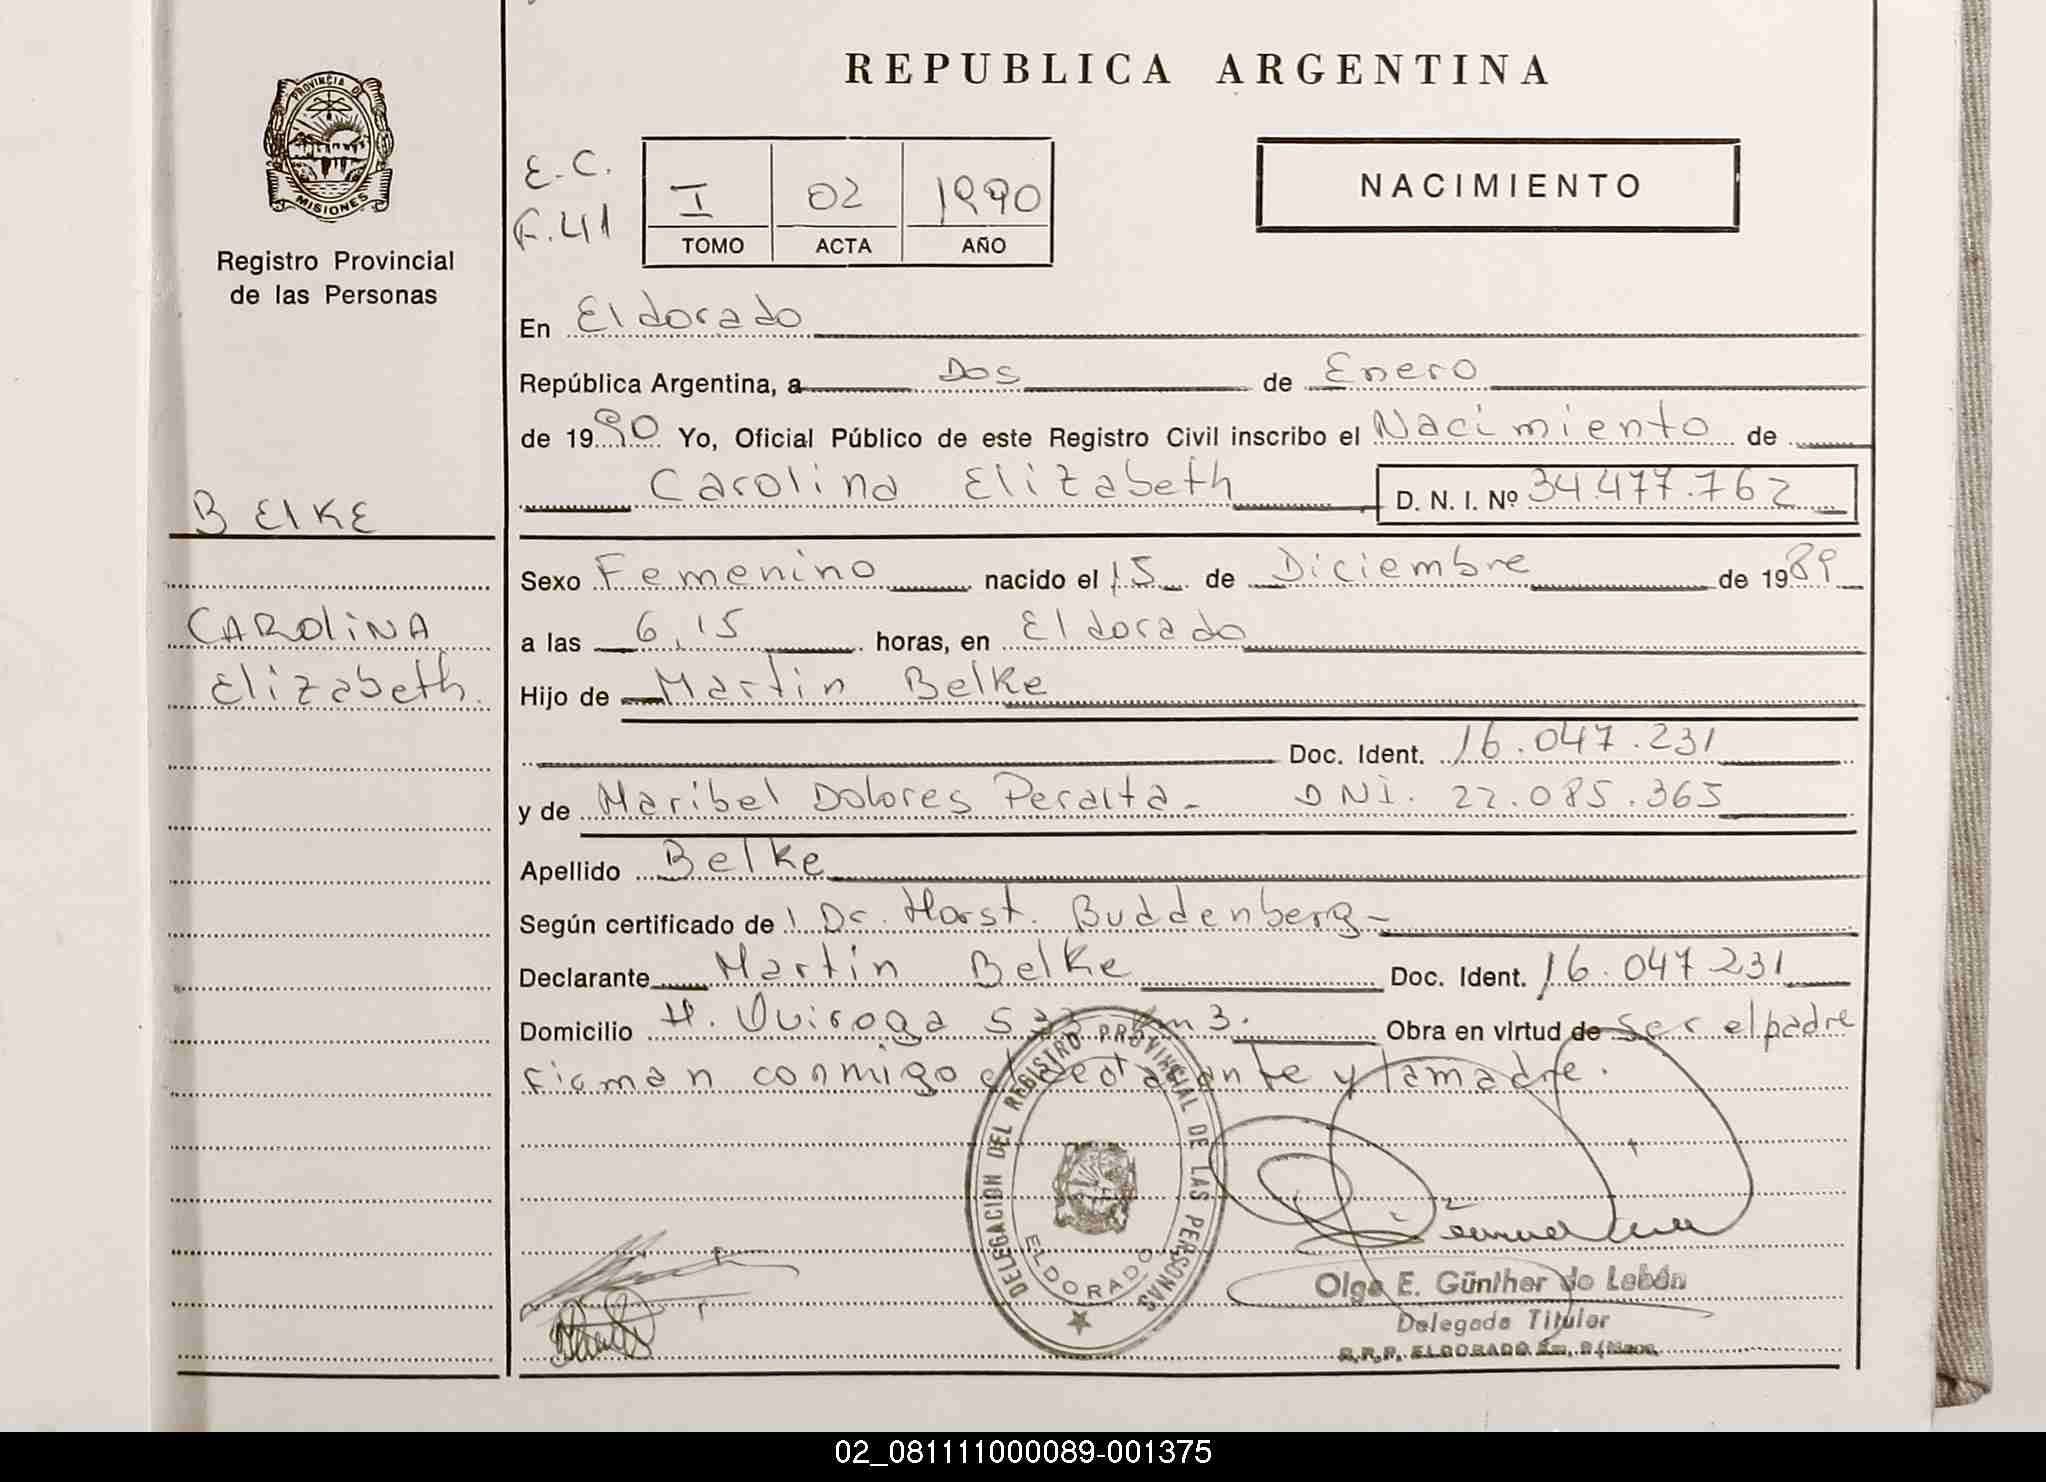 REPUBLICA ARGENTINA
PROVINCIA DE
MISIONES
Registro Provincial
de las Personas
E.C.
F.41
I 02 1990
TOMO ACTA AÑO
NACIMIENTO
En Eldorado
República Argentina, a Dos de Enero
de 1990 Yo, Oficial Público de este Registro Civil inscribo el Nacimiento de
Carolina Elizabeth D. N. I. Nº 34.477.762
BElKE
CAROliNA
Elizabeth.
Sexo Femenino nacido el 15 de Diciembre de 1989
a las 6,15 horas, en Eldorado
Hijo de Martin Belke
Doc. Ident. 16.047.231
y de Maribel Dolores Peralta- DNI. 22.085.365
Apellido Belke
Según certificado de Dr. Horst. Buddenberg-
Declarante Martin Belke Doc. Ident. 16.047.231
Domicilio H. Quiroga Km 3. Obra en virtud de ser el padre
firman conmigo el declarante y la madre.
DELEGACION DEL REGISTRO PROVINCIAL DE LAS PERSONAS
ELDORADO
Olga E. Günther de Lebán
Delegada Titular
R.R.P. ELDORADO Km.
02_081111000089-001375